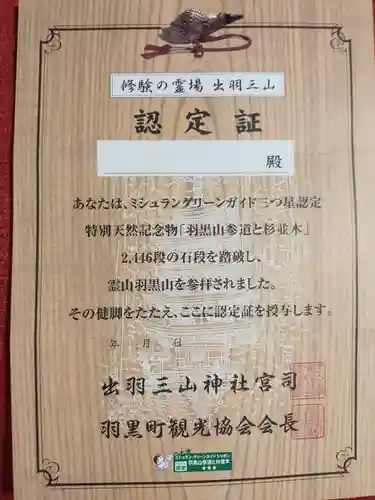 修験の霊場 出羽三山
認定証
殿
あなたは、ミシュラングリーンガイド三つ星認定
特別天然記念物「羽黒山参道と杉並木」
2,446段の石段を踏破し、
霊山羽黒山を参拝されました。
その健脚をたたえ、ここに認定証を授与します。
年 月 日
出羽三山神社宮司
羽黒町観光協会会長
ミシュラン・グリーンガイド・ジャポン
羽黒山参道と杉並木
★★★